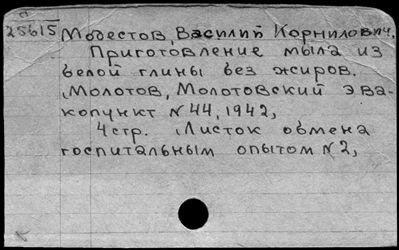 25615 Модестов, Василий Корнилович.
Приготовление мыла из
белой глины без жиров.
Молотов, Молотовский эва-
копункт N 44, 1942,
4 стр. Листок обмена
госпитальным опытом N 2,